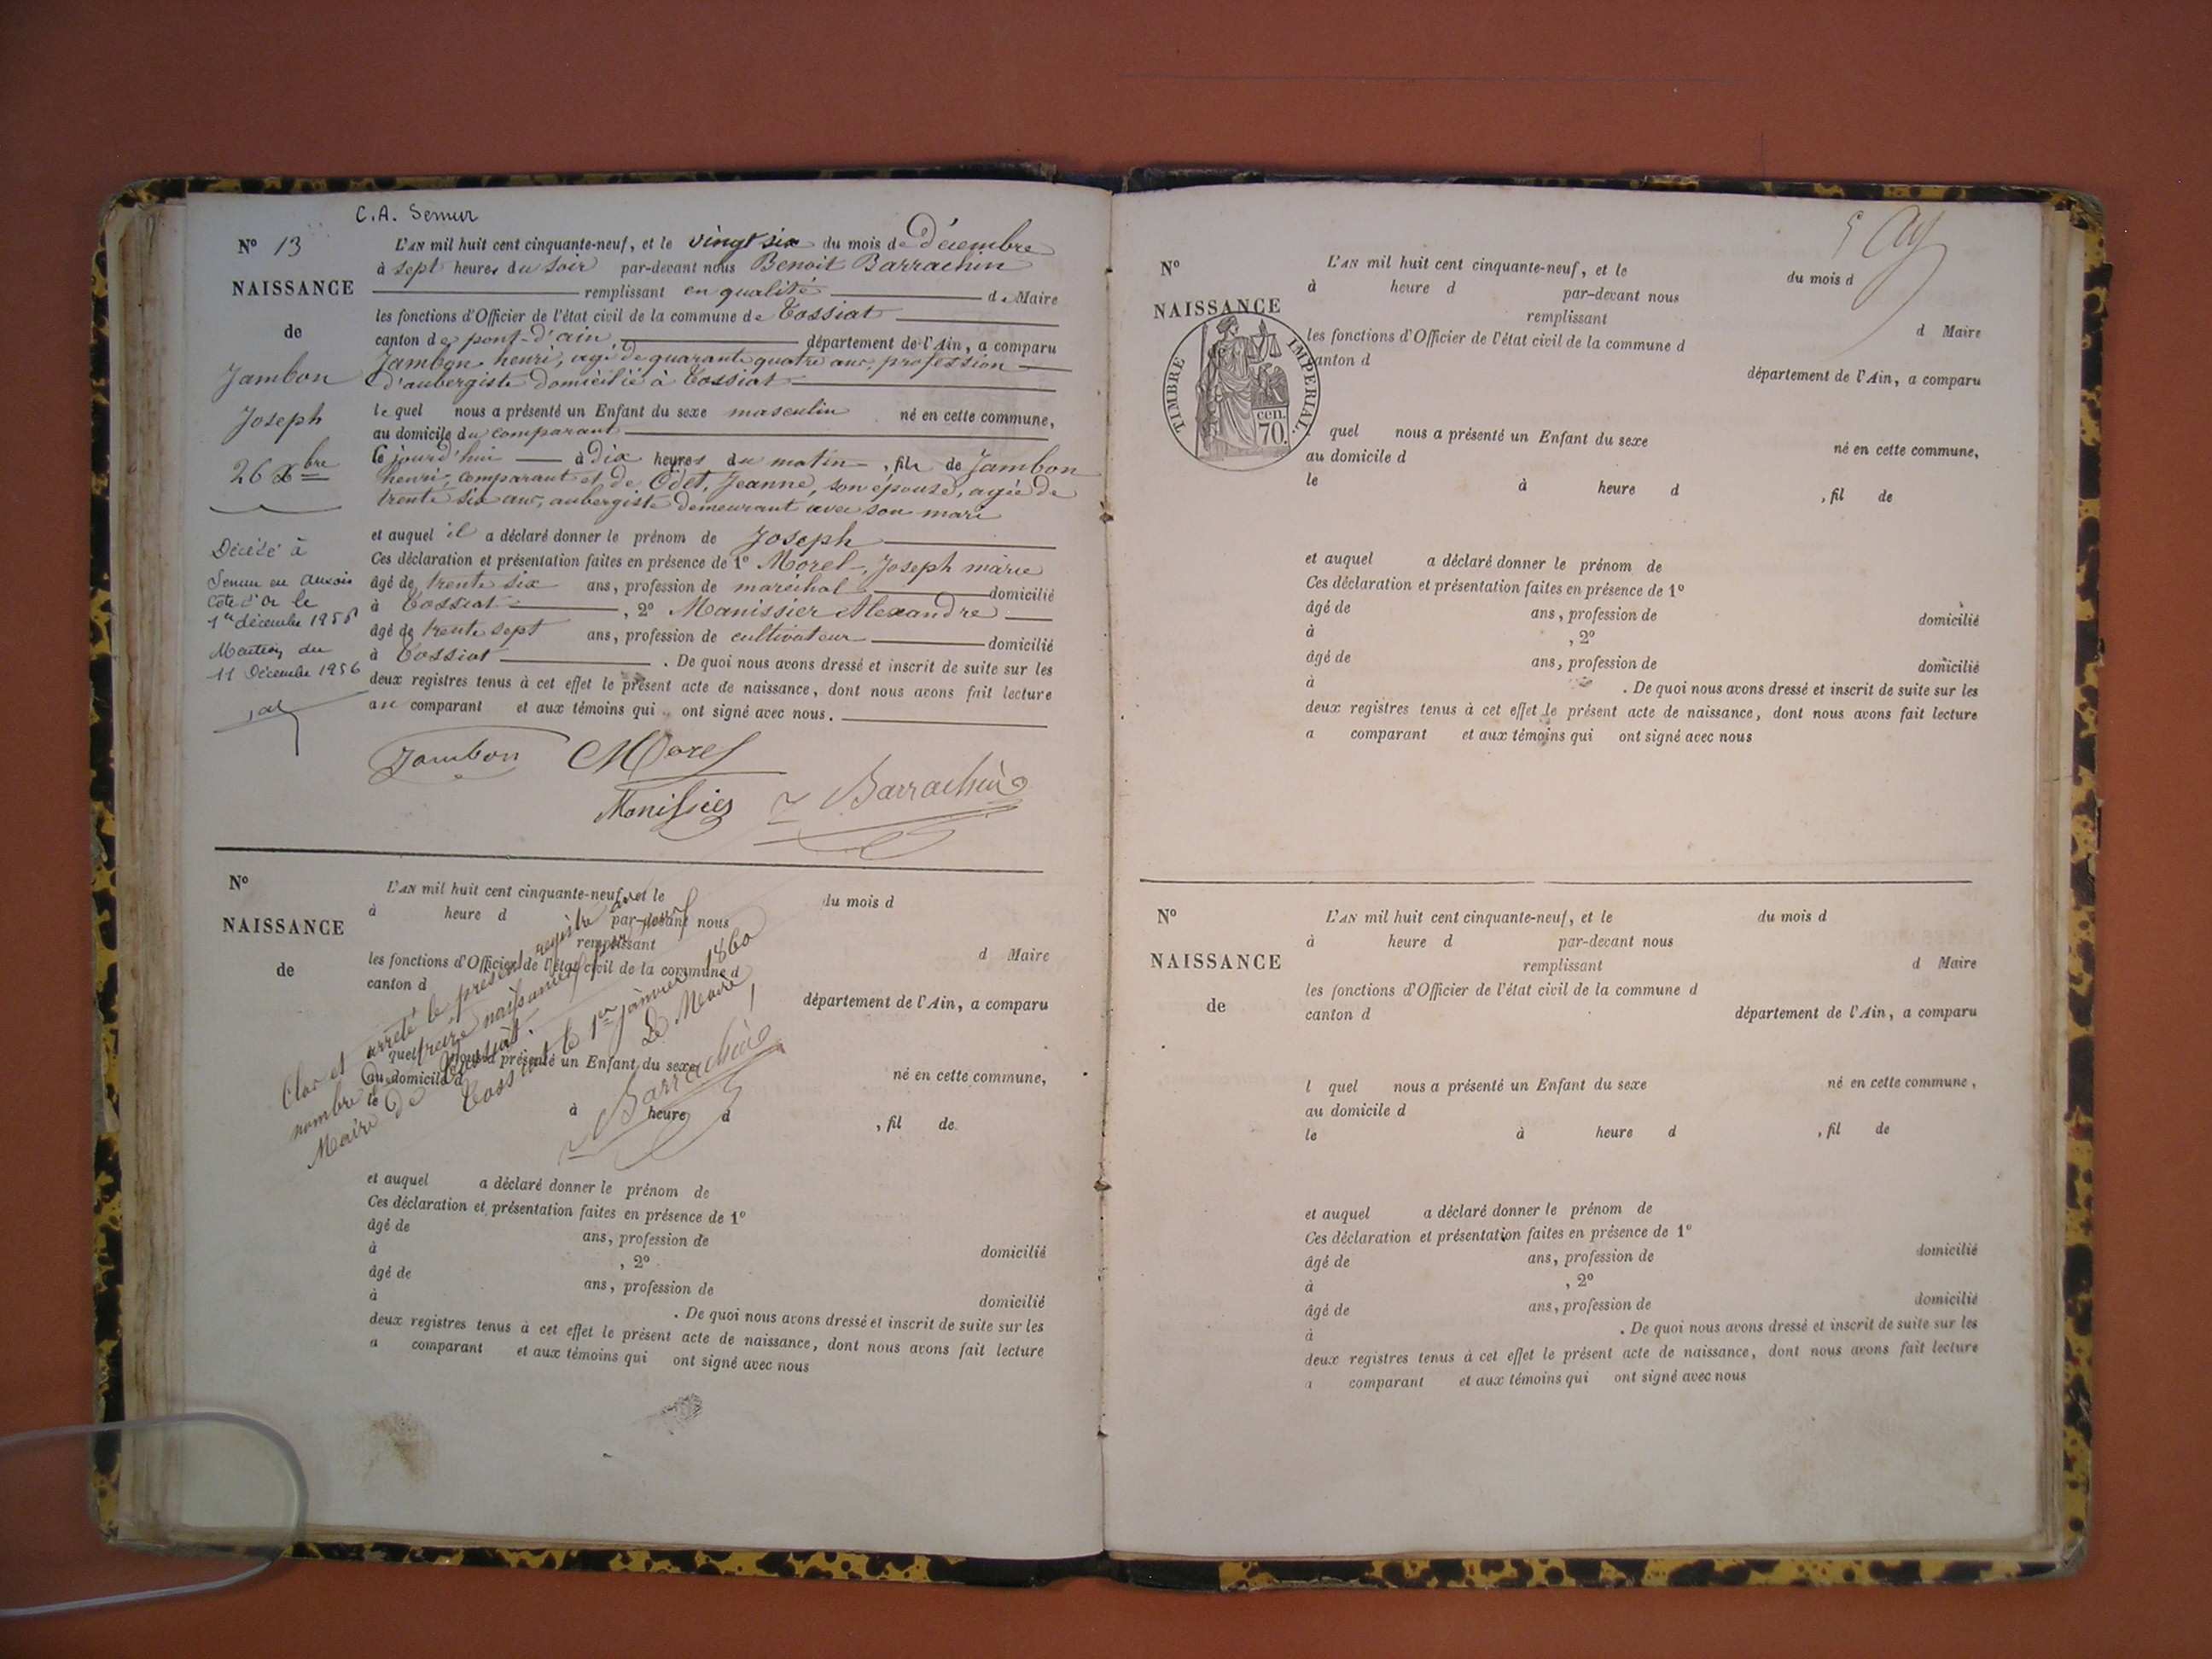 C.A. Semur
N° 13
NAISSANCE
de
Jambon
Joseph
26 Xbre
Décédé à
Semur en Auxois
Côte d'Or le
1er décembre 1956
Mention du
11 Décembre 1956
L'AN mil huit cent cinquante-neuf, et le vingt six du mois de Décembre
à sept heures du soir par-devant nous Benoit Barrachin
remplissant en qualité de Maire
les fonctions d'Officier de l'état civil de la commune de Tossiat
canton de pont-d'ain département de l'Ain, a comparu
Jambon henri, agé de quarante quatre ans, profession
d'aubergiste domicilié à Tossiat
lequel nous a présenté un Enfant du sexe masculin né en cette commune,
au domicile du comparant
Ce jourd'hui à Dix heures du matin, fils de Jambon
henri, comparant et de Odet, Jeanne, son épouse, agée de
trente six ans, aubergiste demeurant avec son mari
et auquel il a déclaré donner le prénom de Joseph
Ces déclaration et présentation faites en présence de 1° Morel, Joseph marie
âgé de trente six ans, profession de maréchal domicilié
à Tossiat, 2° Manissier Alexandre
âgé de trente sept ans, profession de cultivateur domicilié
à Tossiat. De quoi nous avons dressé et inscrit de suite sur les
deux registres tenus à cet effet le présent acte de naissance, dont nous avons fait lecture
au comparant et aux témoins qui ont signé avec nous.
Jambon Morel
Manissier Barrachin
N°
NAISSANCE
de
L'AN mil huit cent cinquante-neuf, et le du mois d
à heure d par-devant nous
remplissant d Maire
les fonctions d'Officier de l'état civil de la commune d
canton d département de l'Ain, a comparu
quel nous a présenté un Enfant du sexe né en cette commune,
au domicile d
le à heure d , fil de
et auquel a déclaré donner le prénom de
Ces déclaration et présentation faites en présence de 1°
âgé de ans, profession de domicilié
à , 2°
âgé de ans, profession de domicilié
à . De quoi nous avons dressé et inscrit de suite sur les
deux registres tenus à cet effet le présent acte de naissance, dont nous avons fait lecture
a comparant et aux témoins qui ont signé avec nous
Clos et arrêté le présent registre au
nombre de treize naissances par nous
Maire de Tossiat.
Tossiat le 1er janvier 1860
Le Maire
Barrachin
N°
NAISSANCE
TIMBRE IMPERIAL.
cen.
70.
L'AN mil huit cent cinquante-neuf, et le du mois d
à heure d par-devant nous
remplissant d Maire
les fonctions d'Officier de l'état civil de la commune d
canton d département de l'Ain, a comparu
quel nous a présenté un Enfant du sexe né en cette commune,
au domicile d
le à heure d , fil de
et auquel a déclaré donner le prénom de
Ces déclaration et présentation faites en présence de 1°
âgé de ans, profession de domicilié
à , 2°
âgé de ans, profession de domicilié
à . De quoi nous avons dressé et inscrit de suite sur les
deux registres tenus à cet effet le présent acte de naissance, dont nous avons fait lecture
a comparant et aux témoins qui ont signé avec nous
N°
NAISSANCE
de
L'AN mil huit cent cinquante-neuf, et le du mois d
à heure d par-devant nous
remplissant d Maire
les fonctions d'Officier de l'état civil de la commune d
canton d département de l'Ain, a comparu
l quel nous a présenté un Enfant du sexe né en cette commune,
au domicile d
le à heure d , fil de
et auquel a déclaré donner le prénom de
Ces déclaration et présentation faites en présence de 1°
âgé de ans, profession de domicilié
à , 2°
âgé de ans, profession de domicilié
à . De quoi nous avons dressé et inscrit de suite sur les
deux registres tenus à cet effet le présent acte de naissance, dont nous avons fait lecture
a comparant et aux témoins qui ont signé avec nous